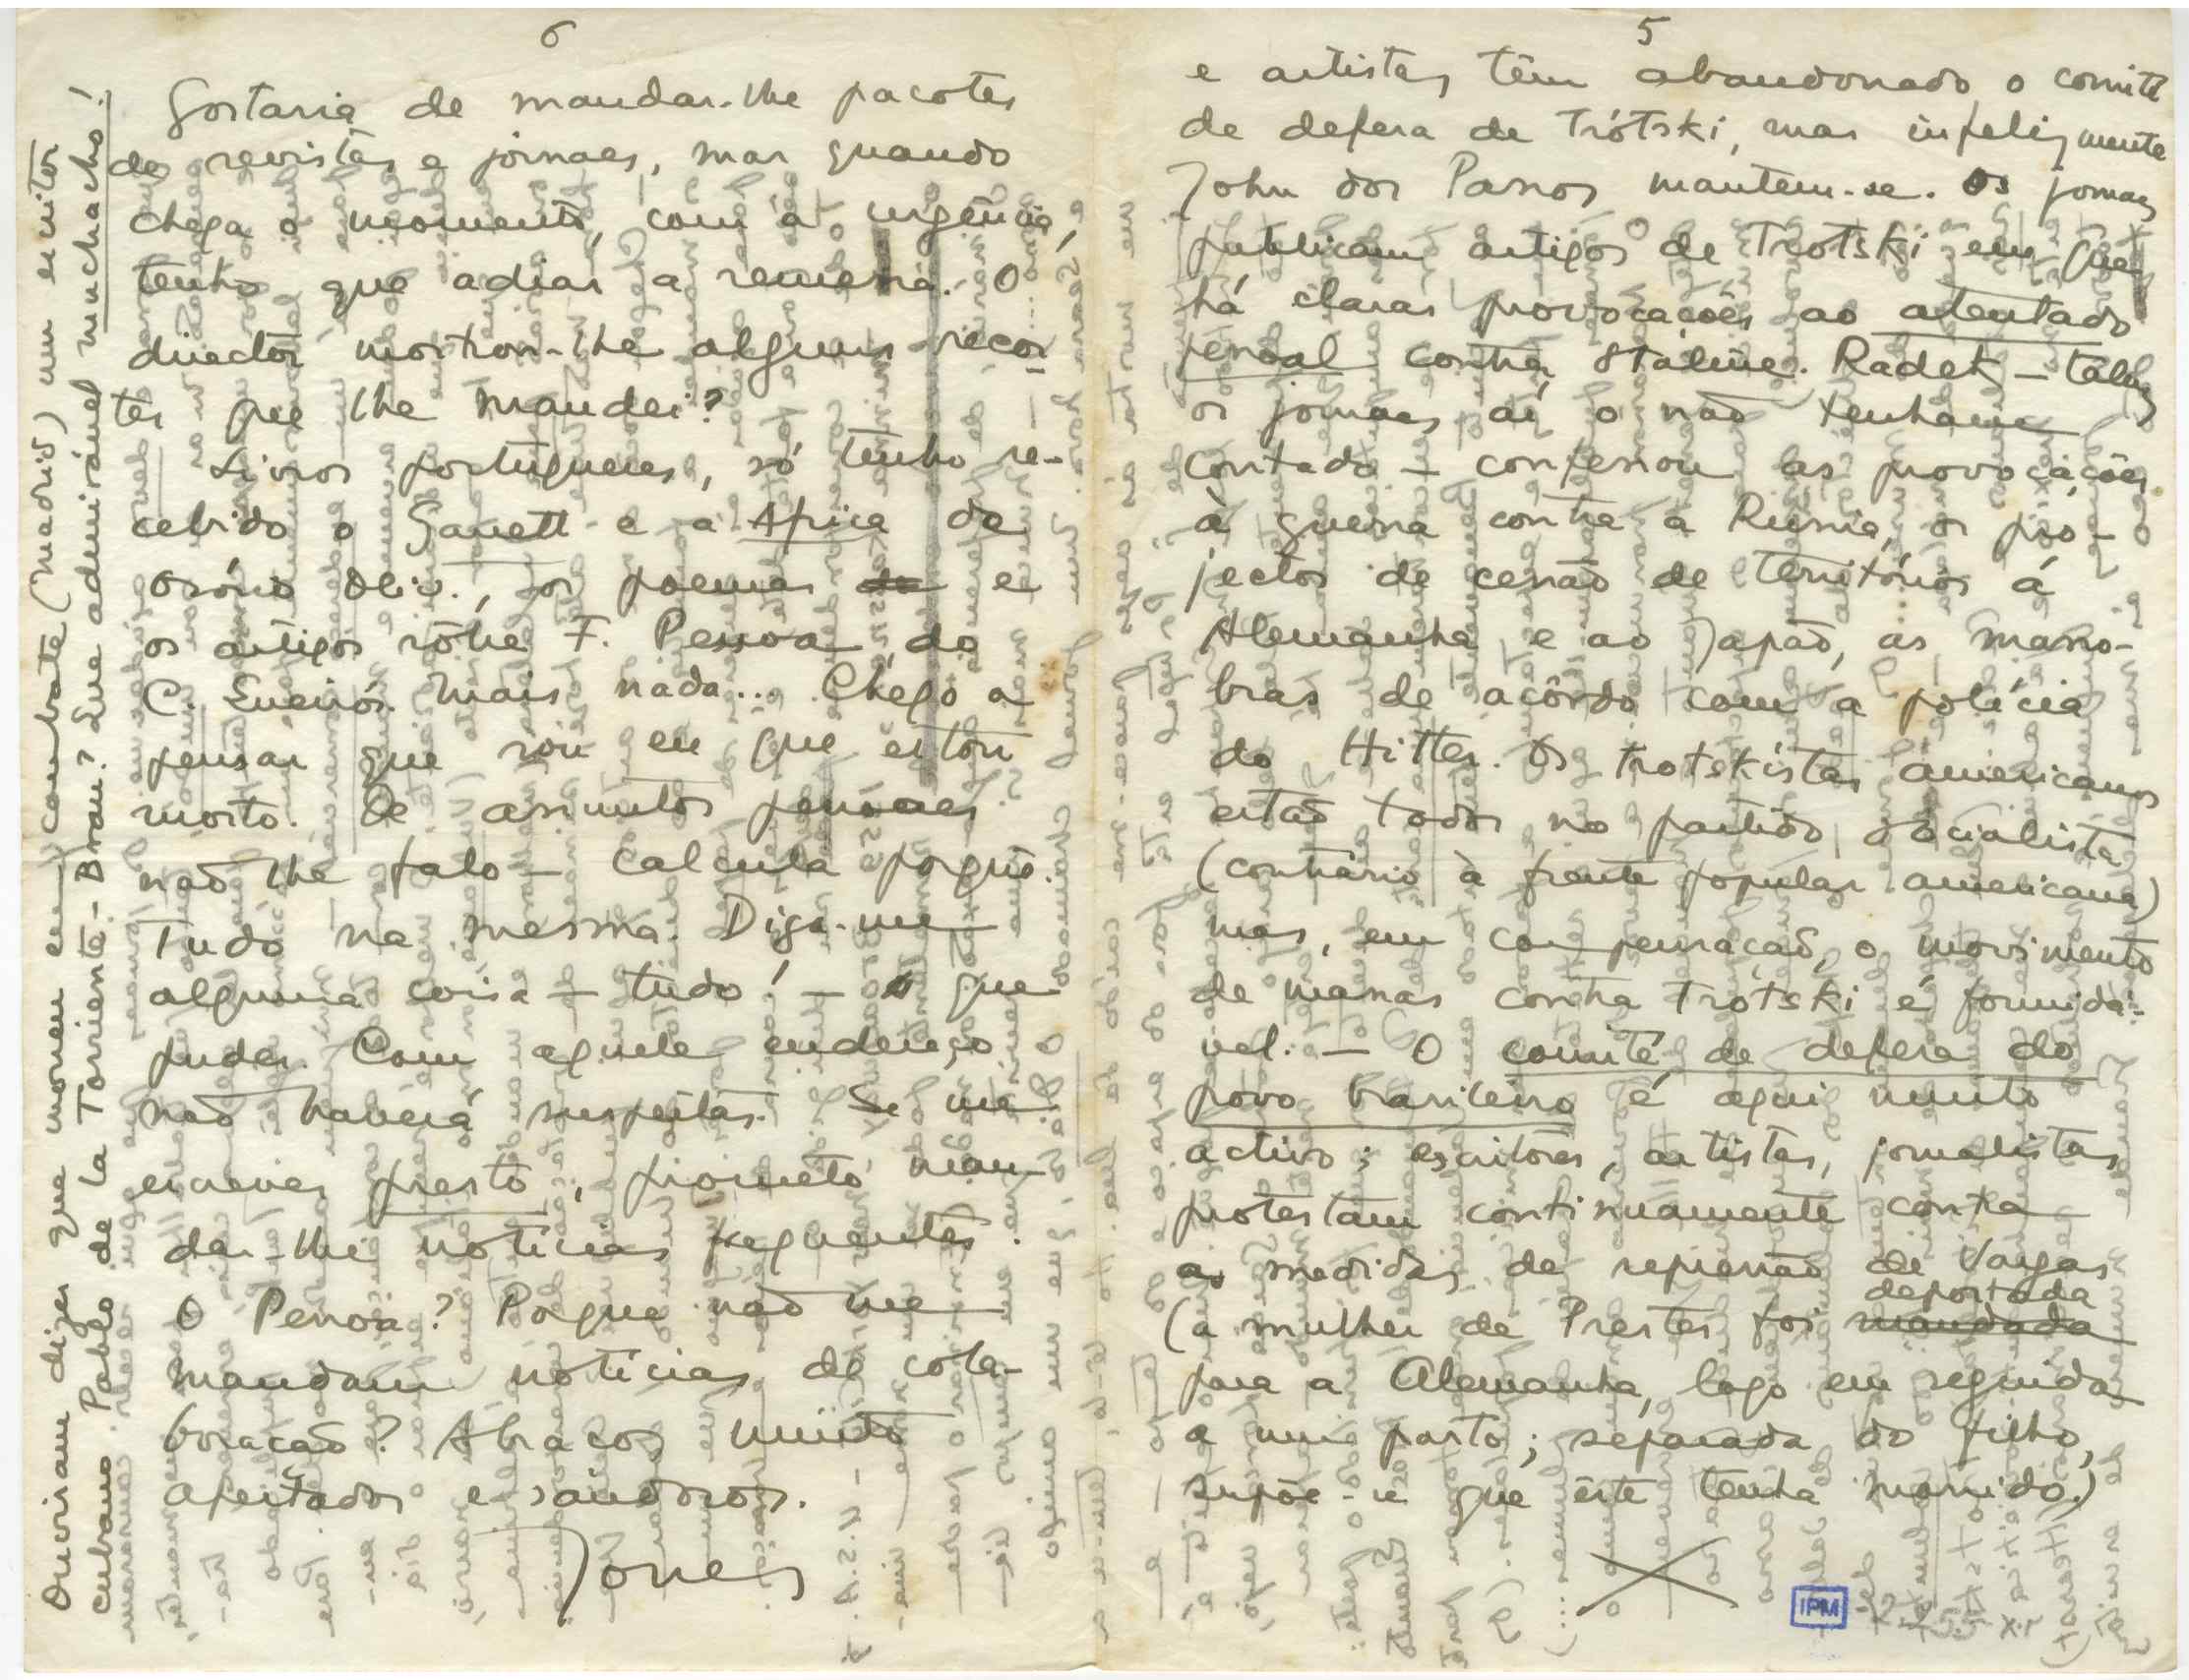 5
e artistas têm abandonado o comité
de defesa de Trótski, mas infelizmente
John dos Passos mantem-se. Os jornaes
publicam artigos de Trotski em que
há claras provocações ao atentado
pessoal contra Stáline. Radek — talvez
os jornaes aí o não tenham
contado — confessou as provocações
á guerra contra a Rússia, os pro-
jectos de cessão de territórios á
Alemanha e ao Japão, as mano-
bras de acôrdo com a polícia
do Hitler. Os trotskistas americanos
estão todos no partido socialista
(contrário à frente popular americana)
mas, em compensação, o movimento
de massas contra Trótski é formidá-
vel. — O comité de defesa do
povo brasileiro é aqui muito
activo; escritores, artistas, jornalistas
protestam continuamente contra
as medidas de repressão de Vargas
(a mulher de Prestes foi mandada deportada
para a Alemanha, logo em seguida
a um parto; separada do filho,
supõe-se que êste tenha morrido.)
IPM
6
Gostaria de mandar-lhe pacotes
de revistas e jornaes, mas quando
chega o momento, com a urgência,
tenho que adiar a remessa. O
director mostrou-lhe alguns recor-
tes que lhe mandei?
Livros portugueses, só tenho re-
cebido o Garrett e a Africa do
Osório Oliv., os poemas e
os artigos sôbre F. Pessoa do
C. Queirós. Mais nada... Chego a
pensar que sou eu que estou
morto. De assuntos pessoaes
não lhe falo — calcula porquê.
Tudo na mesma. Diga-me
alguma coisa — tudo! — o que
puder. Com aquele endereço
não haverá suspeitas. Se me
escrever presto, prometo man-
dar-lhe notícias frequentes.
O Pessoa? Porque não me
mandam notícias de cola-
boração? Abraços muito
apertados e saüdosos.
Jones
Ouviram dizer que morreu em combate (Madrid) um escritor
cubano Pablo de la Torriente-Brau? Que admirável muchacho!